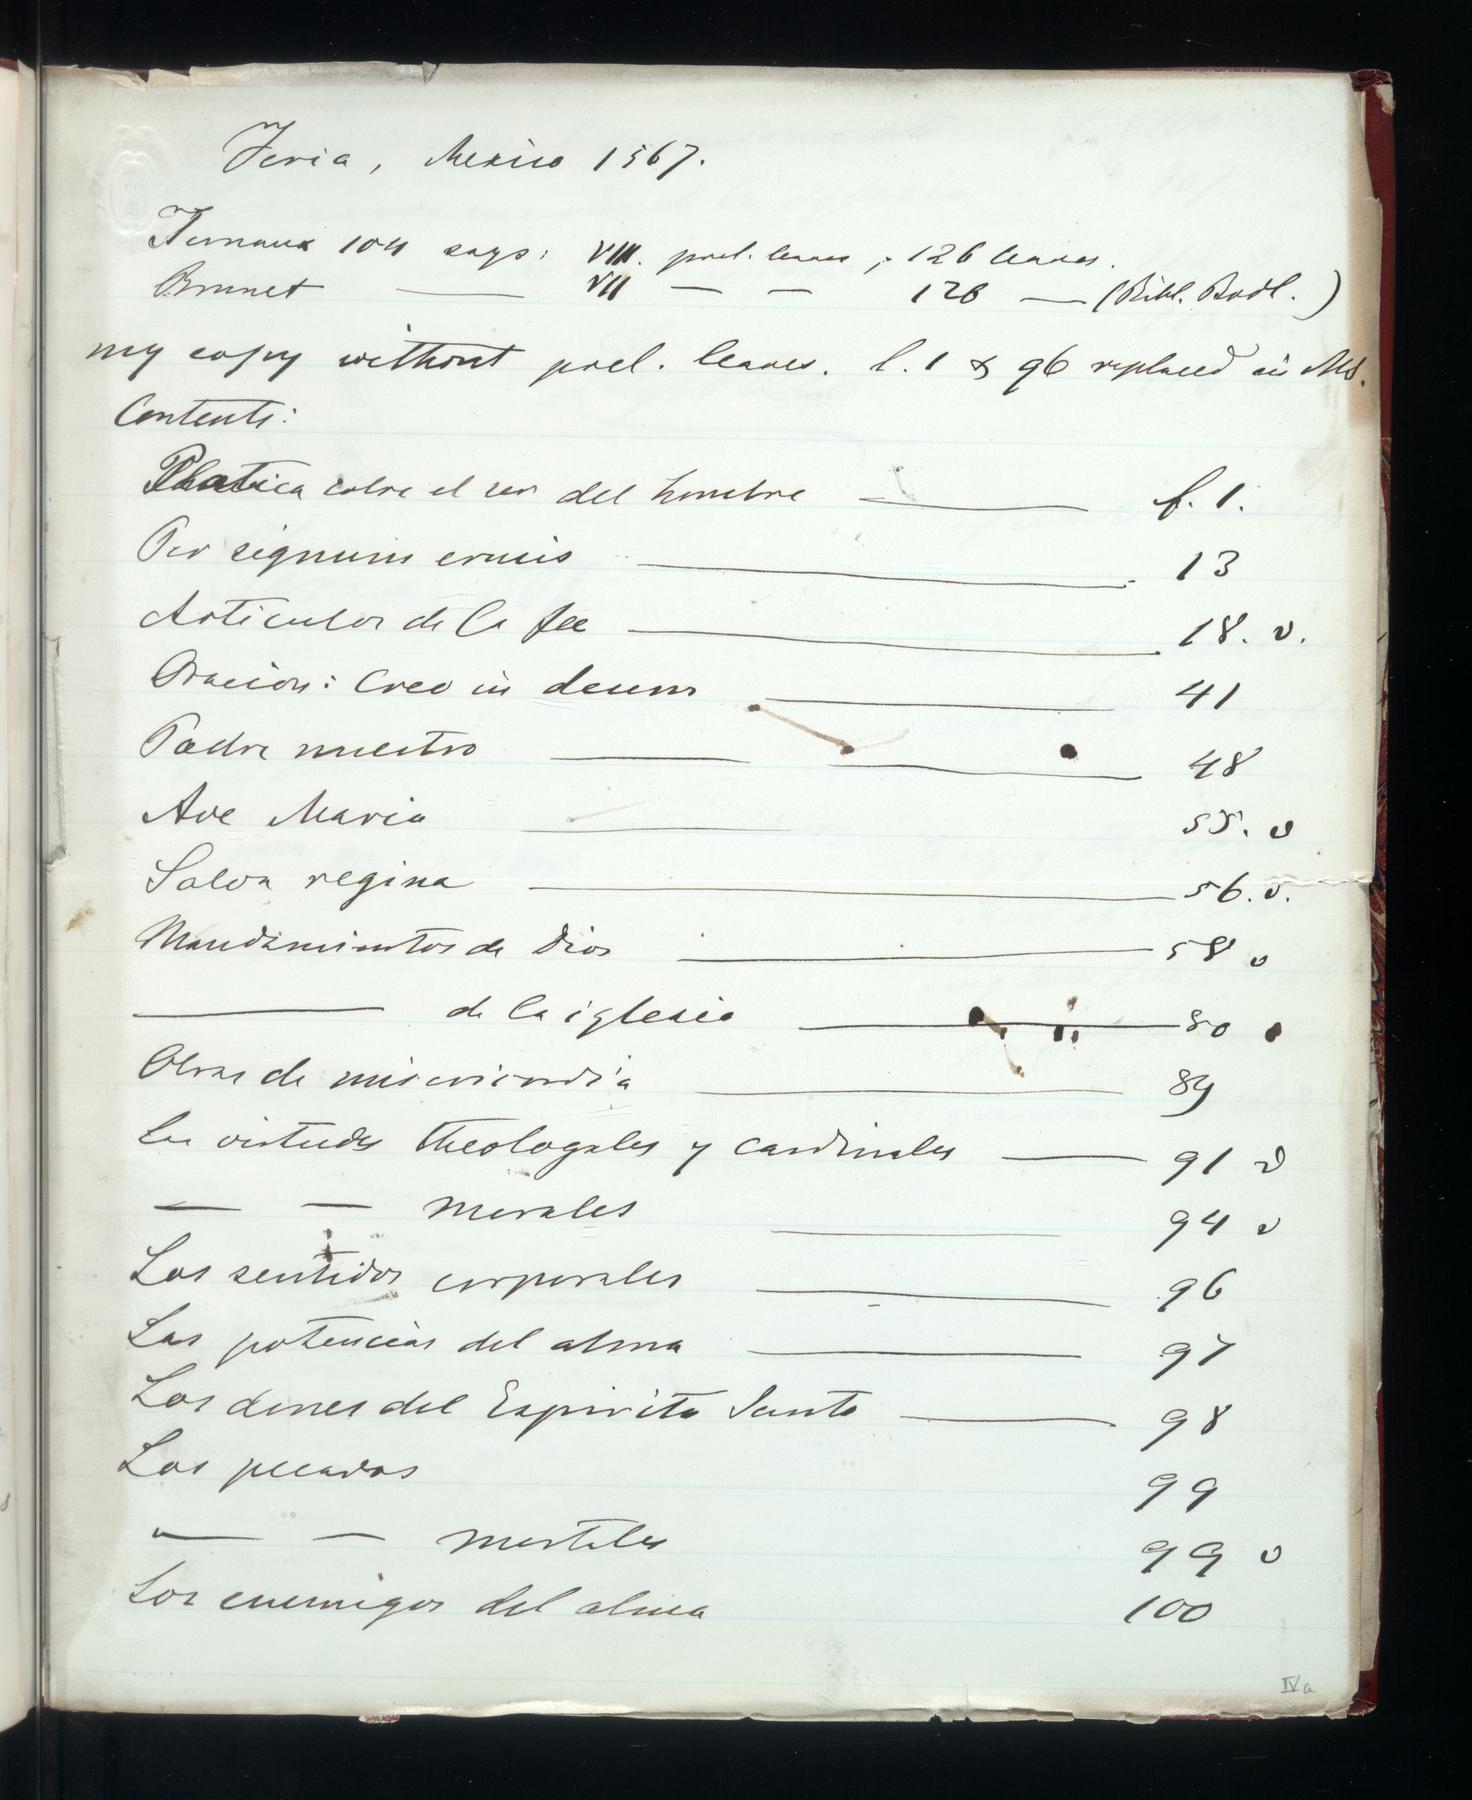 Feria, Mexico 1567.
Ternaux 104 says: VIII. prel. leaves; 126 leaves.
Brunet — VII — — 126 — (Bibl. Bodl.)
my copy without prel. leaves. l. 1 & 96 replaced in Ms.
Contents:
Platica sobre el ser del hombre — f. 1.
Per signum crucis — 13
Articulos de la fee — 18. v.
Oracion: Creo in deum — 41
Padre nuestro — 48
Ave Maria — 55. v
Salva regina — 56. v.
Mandamientos de Dios — 58 v
— de la iglesia — 80
Obras de misericordia — 89
las virtudes theologales y cardinales — 91 v
— — morales — 94 v
Los sentidos corporales — 96
Las potencias del alma — 97
Los dones del Espirito Santo — 98
Los pecados 99
— — mortales 99 v
Los enemigos del alma 100
IVa